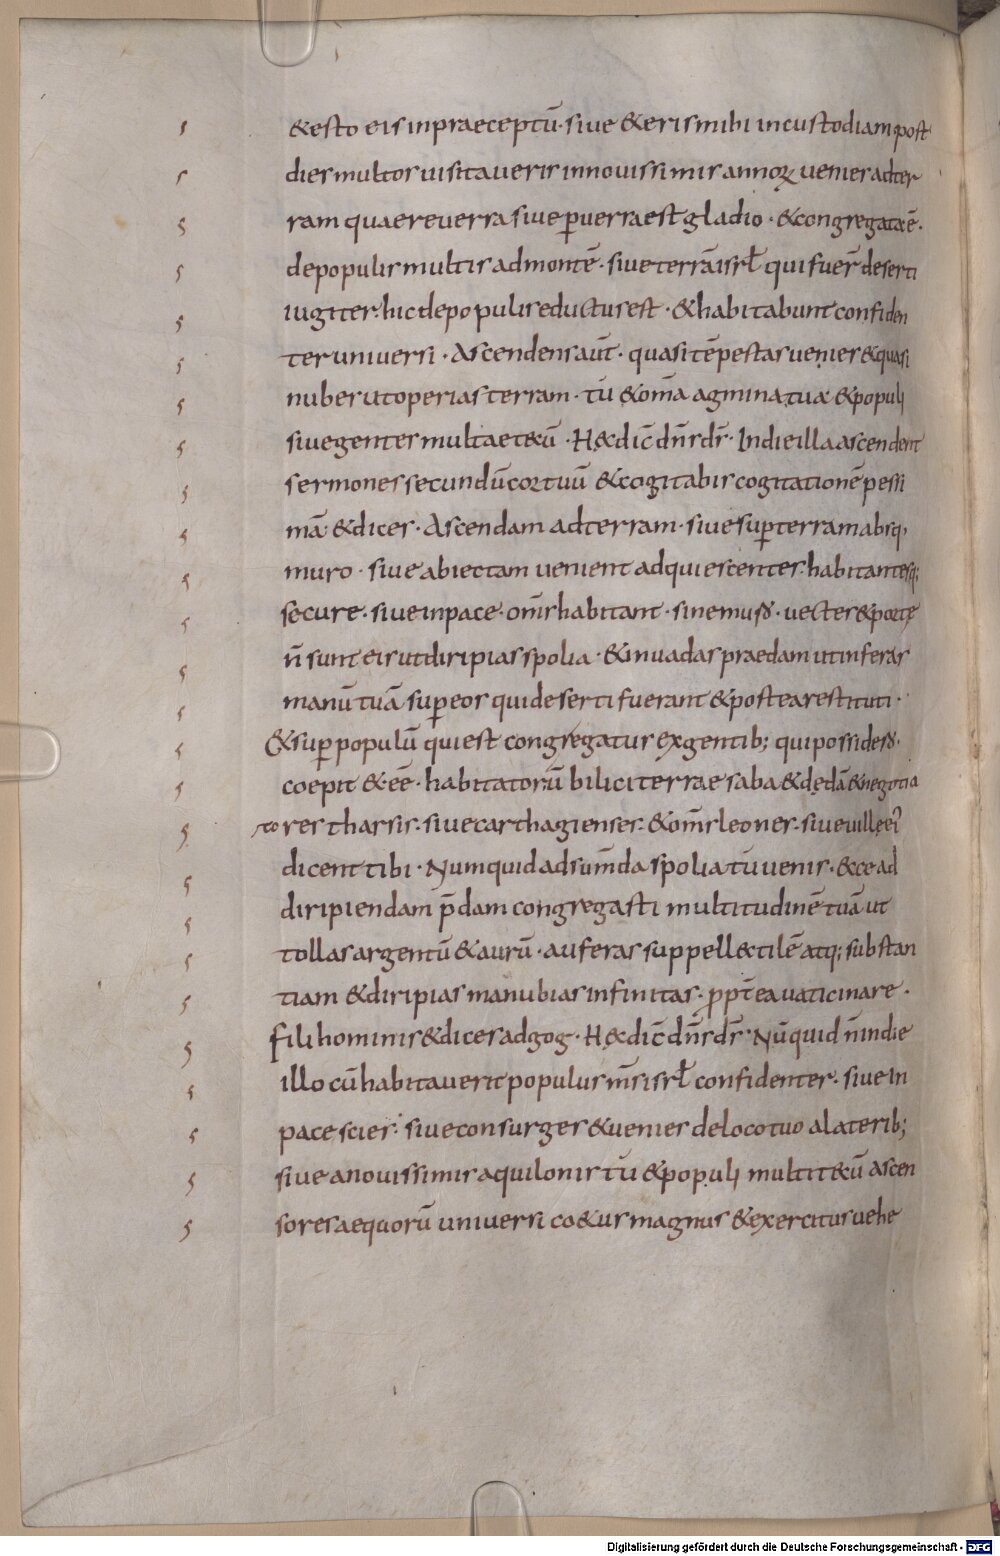 &esto eis inpraeceptū· siue &eris mihi incustodiam post
dies multos uisitaueris innouissimis annoꝝ uenies adter
ram quae reuersa siue ꝑuersa est gladio · &congregata ē·
depopulis multis admontē· siue terrā isrł qui fuer̄ deserti
iugiter· hic depopulis eductus est · &habitabunt confiden
ter uniuersi · Ascendens aut̄· quasi tēpestas uenies &quasi
nubes utoperias terram · tū &om̄a agmina tua &populi
siue gentes multae tecū · H&c dic̄ dn̄s ds̄· Indie illa ascendent
sermones secundū cor tuū &cogitabis cogitationē pessi
mā &dices · Ascendam adterram· siue sup̱ terram absq;
muro · siue abiectam uenient adquiescentes· habitantesq;
secure · siue inpace · om̄s habitant · sine muro· uectes &portę
n̄ sunt eis utdiripias spolia · &inuadas praedam utinferas
manū tuā sup̱ eos qui deserti fuerant &postea restituti ·
&sup̱ populū qui est congregatus exgentib; qui possidere·
coepit &eē · habitatorū bilici terrae saba &dedā &negotia
tores tharsis· siue carthaginenses· &om̄s leones· siue uillę ei'
dicent tibi · Numquid adsum̄da spolia tū uenis · &cce ad
diripiendam p̄dam congregasti multitudinē tuā ut
tollas argentū &aurū · auferas suppell&tilē atq; substan
tiam &diripias manubias infinitas · ꝓpt̄ea uaticinare ·
fili hominis &dices adgog · H&c dic̄ dn̄s ds̄ · Nūquid n̄ indie
illo cū habitauerit populus m̄s isrł confidenter· siue in
pace scies· siue consurges &uenies deloco tuo alaterib;
siue anouissimis aquilonis tū &populi multi tecū ascen
sores aequorū uniuersi co&us magnus &exercitus uehe
Digitalisierung gefördert durch die Deutsche Forschungsgemeinschaft - DFG